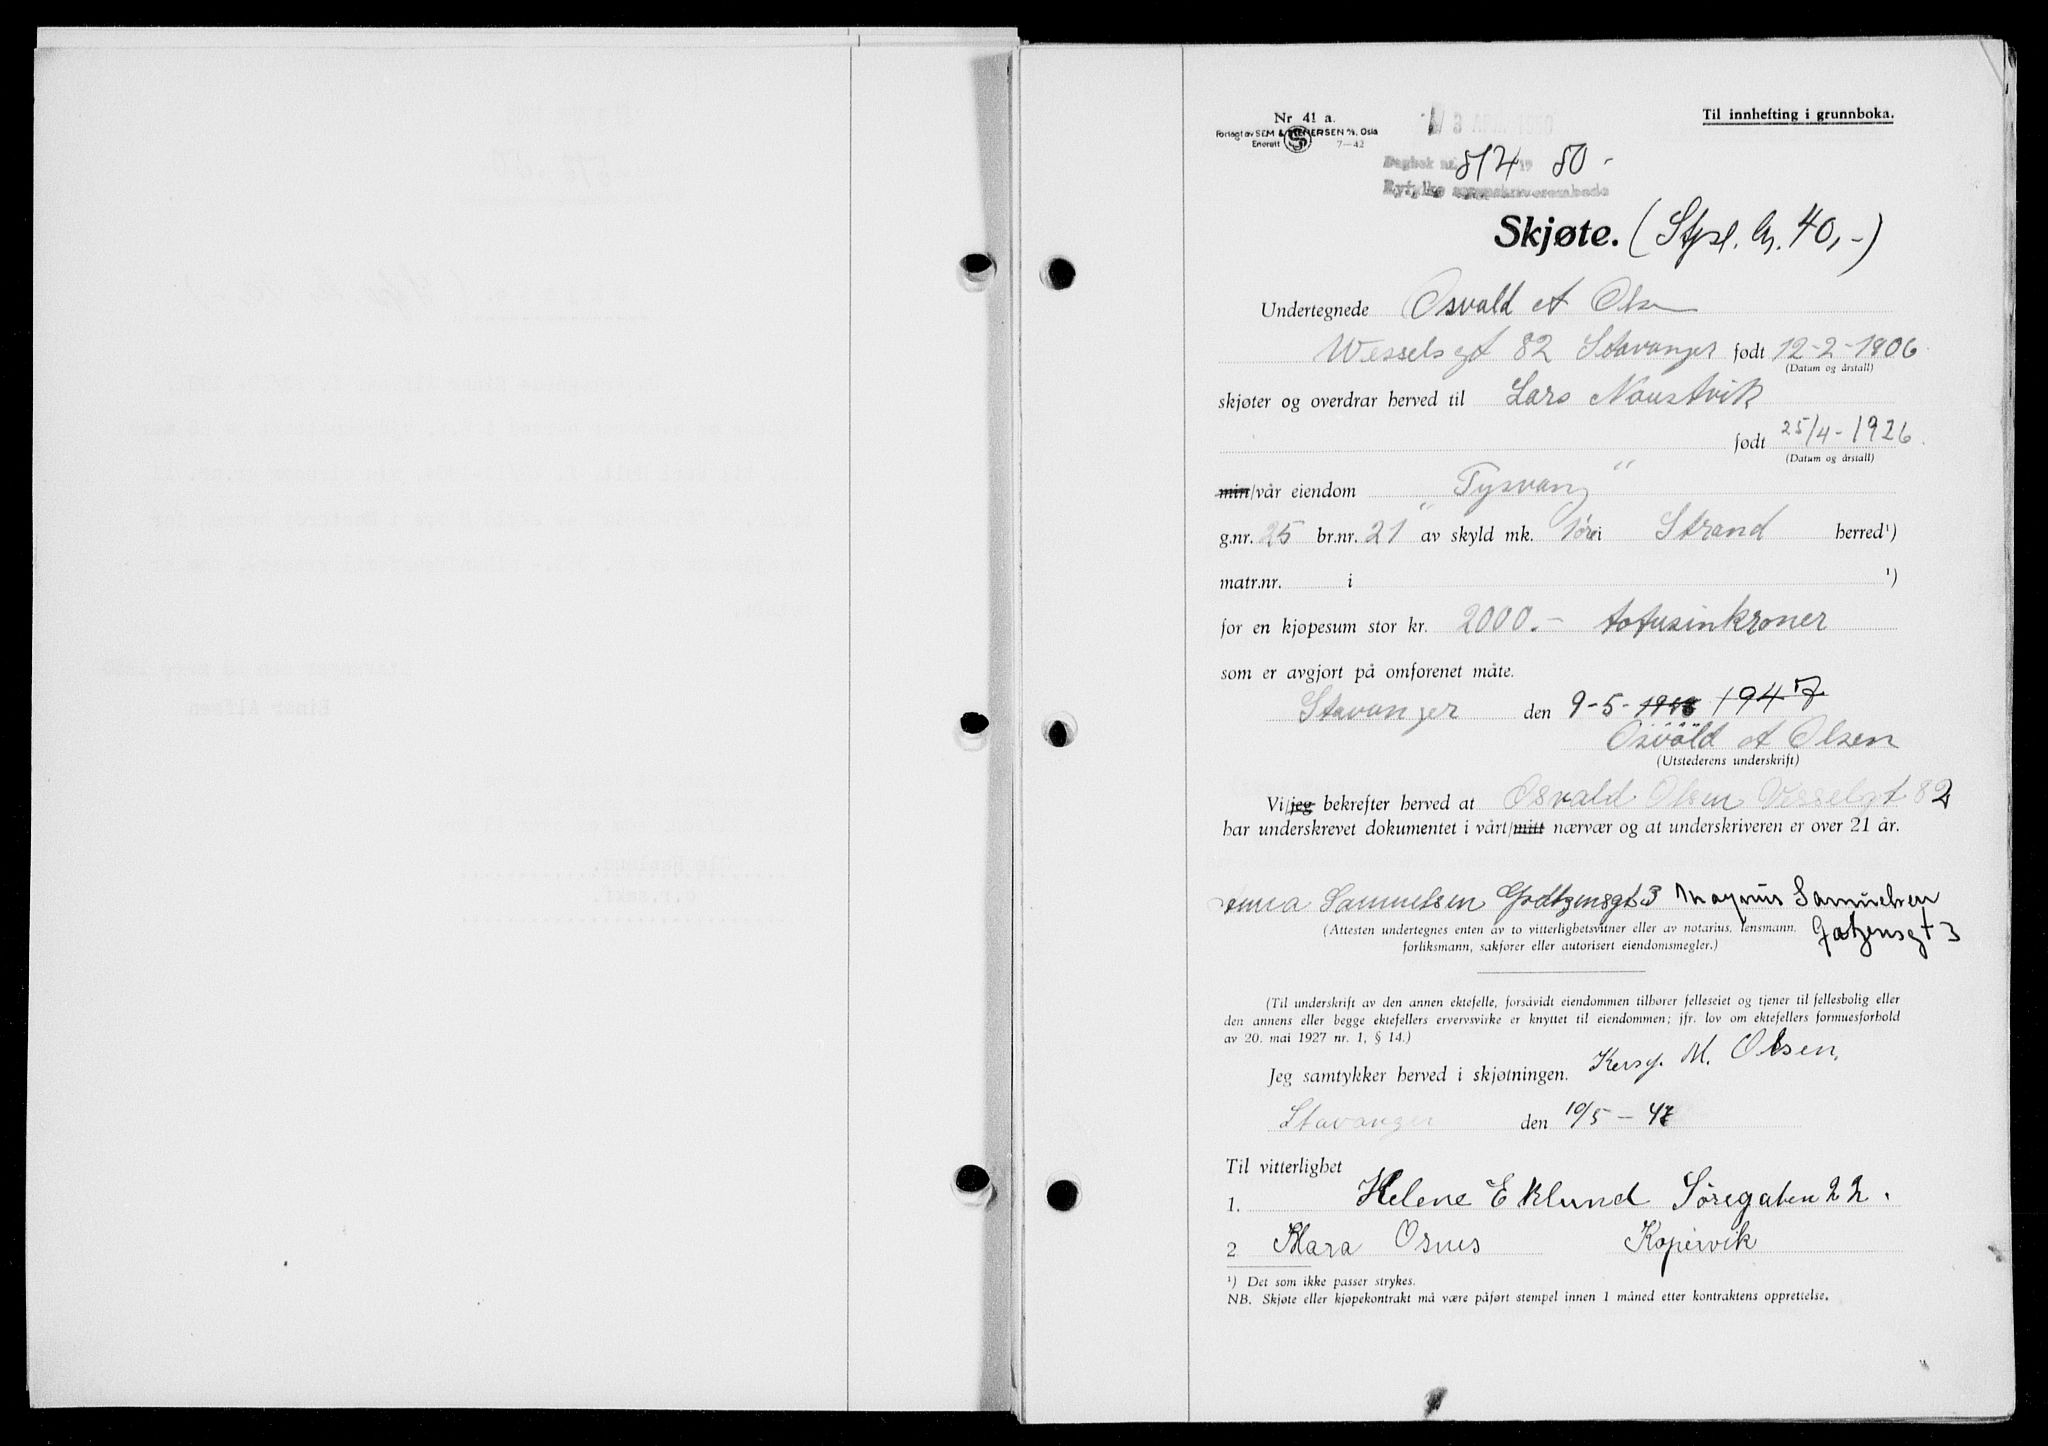 Nr 41 a.
Forlagt av SEM & STENERSEN A/S, Oslo
Enerett 7-42
Til innhefting i grunnboka.
Dagbok nr. 814 19 50-
Ryfylke sorenskriverembede
Skjøte. (Stpl. kr. 40,-)
Undertegnede Osvald A Olsen
Wesselsgt 82 Stavanger født 12-2-1906
(Datum og årstall)
skjøter og overdrar herved til Lars Naustvik
født 25/4-1926
(Datum og årstall)
min/vår eiendom "Tysvang"
g.nr. 25 br.nr. 21 av skyld mk. 1 øre i Strand herred¹)
matr.nr. i ¹)
for en kjøpesum stor kr. 2000.- totusinkroner
som er avgjort på omforenet måte.
Stavanger den 9-5- 1947
Osvald A Olsen
(Utstederens underskrift)
Vi/jeg bekrefter herved at Osvald Olsen Vesselgt 82
har underskrevet dokumentet i vårt/mitt nærvær og at underskriveren er over 21 år.
Anna Samuelsen Gøtzensgt 3 Magnus Samuelsen
Gøtzensgt 3
(Attesten undertegnes enten av to vitterlighetsvitner eller av notarius, lensmann,
forliksmann, sakfører eller autorisert eiendomsmegler.)
(Til underskrift av den annen ektefelle, forsåvidt eiendommen tilhører felleseiet og tjener til fellesbolig eller
den annens eller begge ektefellers ervervsvirke er knyttet til eiendommen; jfr. lov om ektefellers formuesforhold
av 20. mai 1927 nr. 1, § 14.)
Jeg samtykker herved i skjøtningen. M. Olsen.
Stavanger den 10/5-47
Til vitterlighet
1. Helene Eklund Søregaten 22.
2 Klara Osnes Kopervik
¹) Det som ikke passer strykes.
NB. Skjøte eller kjøpekontrakt må være påført stempel innen 1 måned etter kontraktens opprettelse.